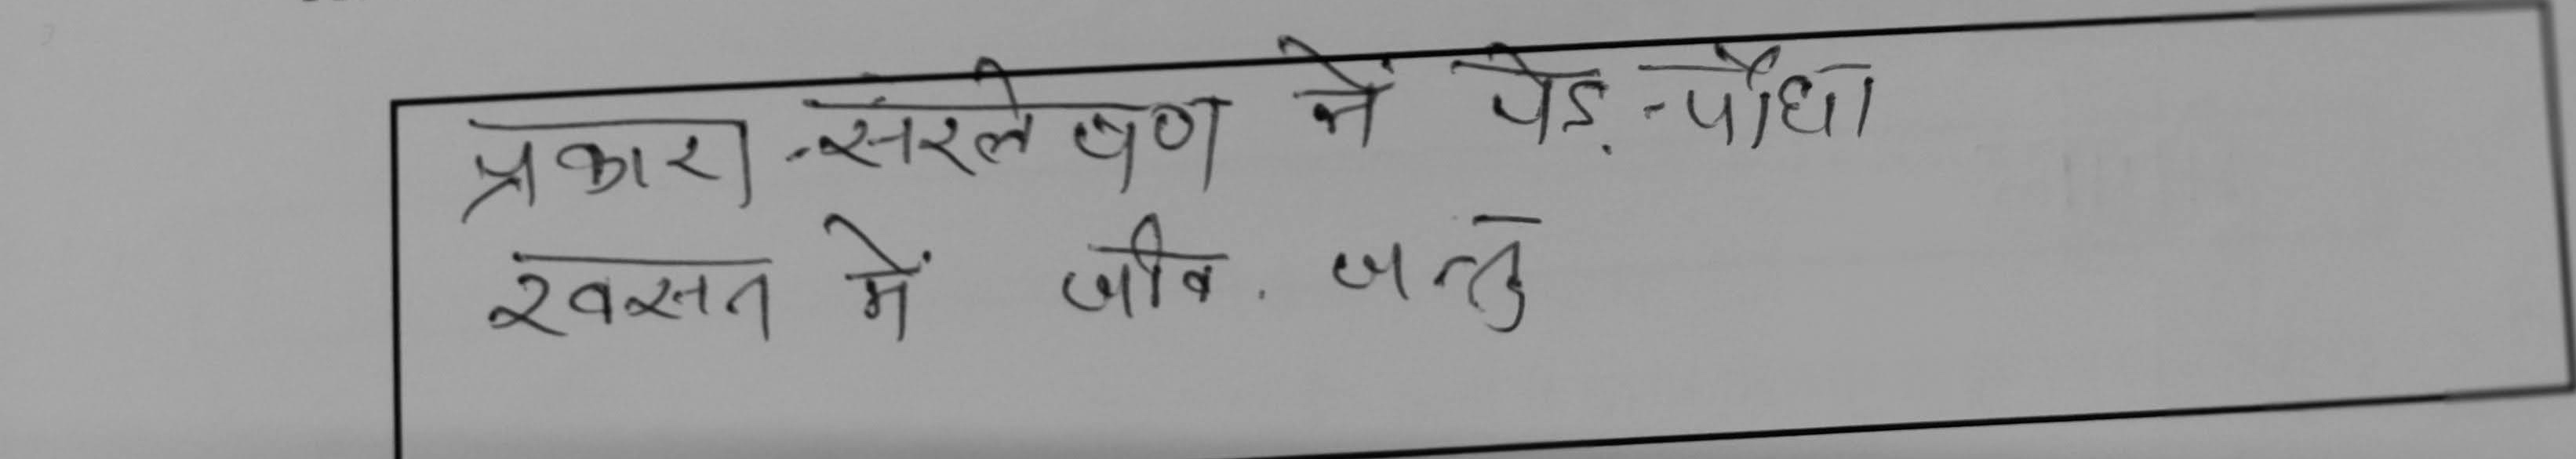 प्रकाश-संश्लेषण में पेड़-पौधा
श्वसन में जीव. जन्तु